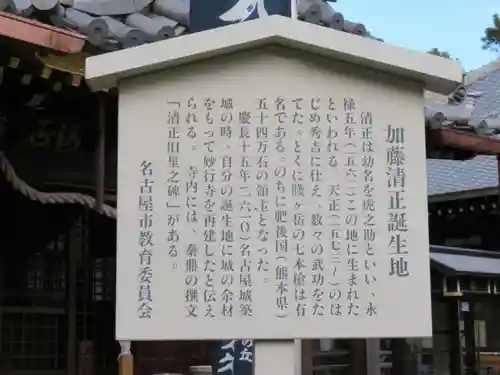 加藤清正誕生地
清正は幼名を虎之助といい、永
禄五年(一五六二)この地に生まれた
といわれる。天正(一五七三〜)のは
じめ秀吉に仕え、数々の武功をた
てた。とくに賤ヶ岳の七本槍は有
名である。のちに肥後国(熊本県)
五十四万石の領主となった。
慶長十五年(一六一〇)名古屋城築
城の時、自分の誕生地に城の余材
をもって妙行寺を再建したと伝え
られる。寺内には、秦鼎の撰文
「清正旧里之碑」がある。
名古屋市教育委員会